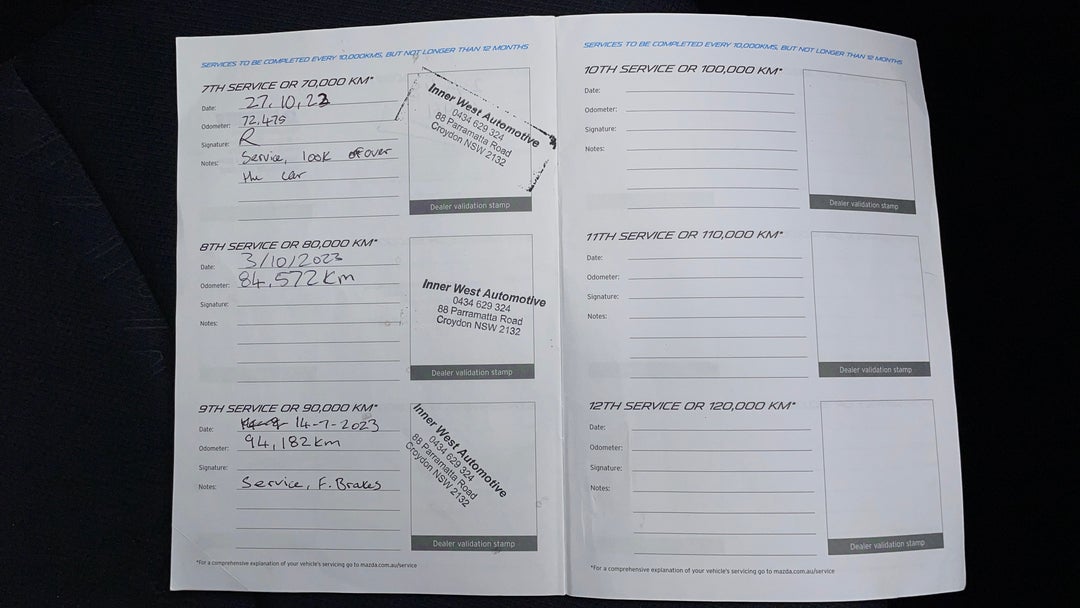 SERVICES TO BE COMPLETED EVERY 10,000KMS, BUT NOT LONGER THAN 12 MONTHS
7TH SERVICE OR 70,000 KM*
Date: 27.10.22
Odometer: 72.475
Signature: R
Notes: Service, look over
the car
Inner West Automotive
0434 629 324
88 Parramatta Road
Croydon NSW 2132
Dealer validation stamp
8TH SERVICE OR 80,000 KM*
Date: 3/10/2023
Odometer: 84,572km
Signature:
Notes:
Inner West Automotive
0434 629 324
88 Parramatta Road
Croydon NSW 2132
Dealer validation stamp
9TH SERVICE OR 90,000 KM*
Date: 14-7-2023
Odometer: 94,182km
Signature:
Notes: Service, F. Brakes
Inner West Automotive
0434 629 324
88 Parramatta Road
Croydon NSW 2132
Dealer validation stamp
*For a comprehensive explanation of your vehicle's servicing go to mazda.com.au/service
SERVICES TO BE COMPLETED EVERY 10,000KMS, BUT NOT LONGER THAN 12 MONTHS
10TH SERVICE OR 100,000 KM*
Date:
Odometer:
Signature:
Notes:
Dealer validation stamp
11TH SERVICE OR 110,000 KM*
Date:
Odometer:
Signature:
Notes:
Dealer validation stamp
12TH SERVICE OR 120,000 KM*
Date:
Odometer:
Signature:
Notes:
Dealer validation stamp
*For a comprehensive explanation of your vehicle's servicing go to mazda.com.au/service